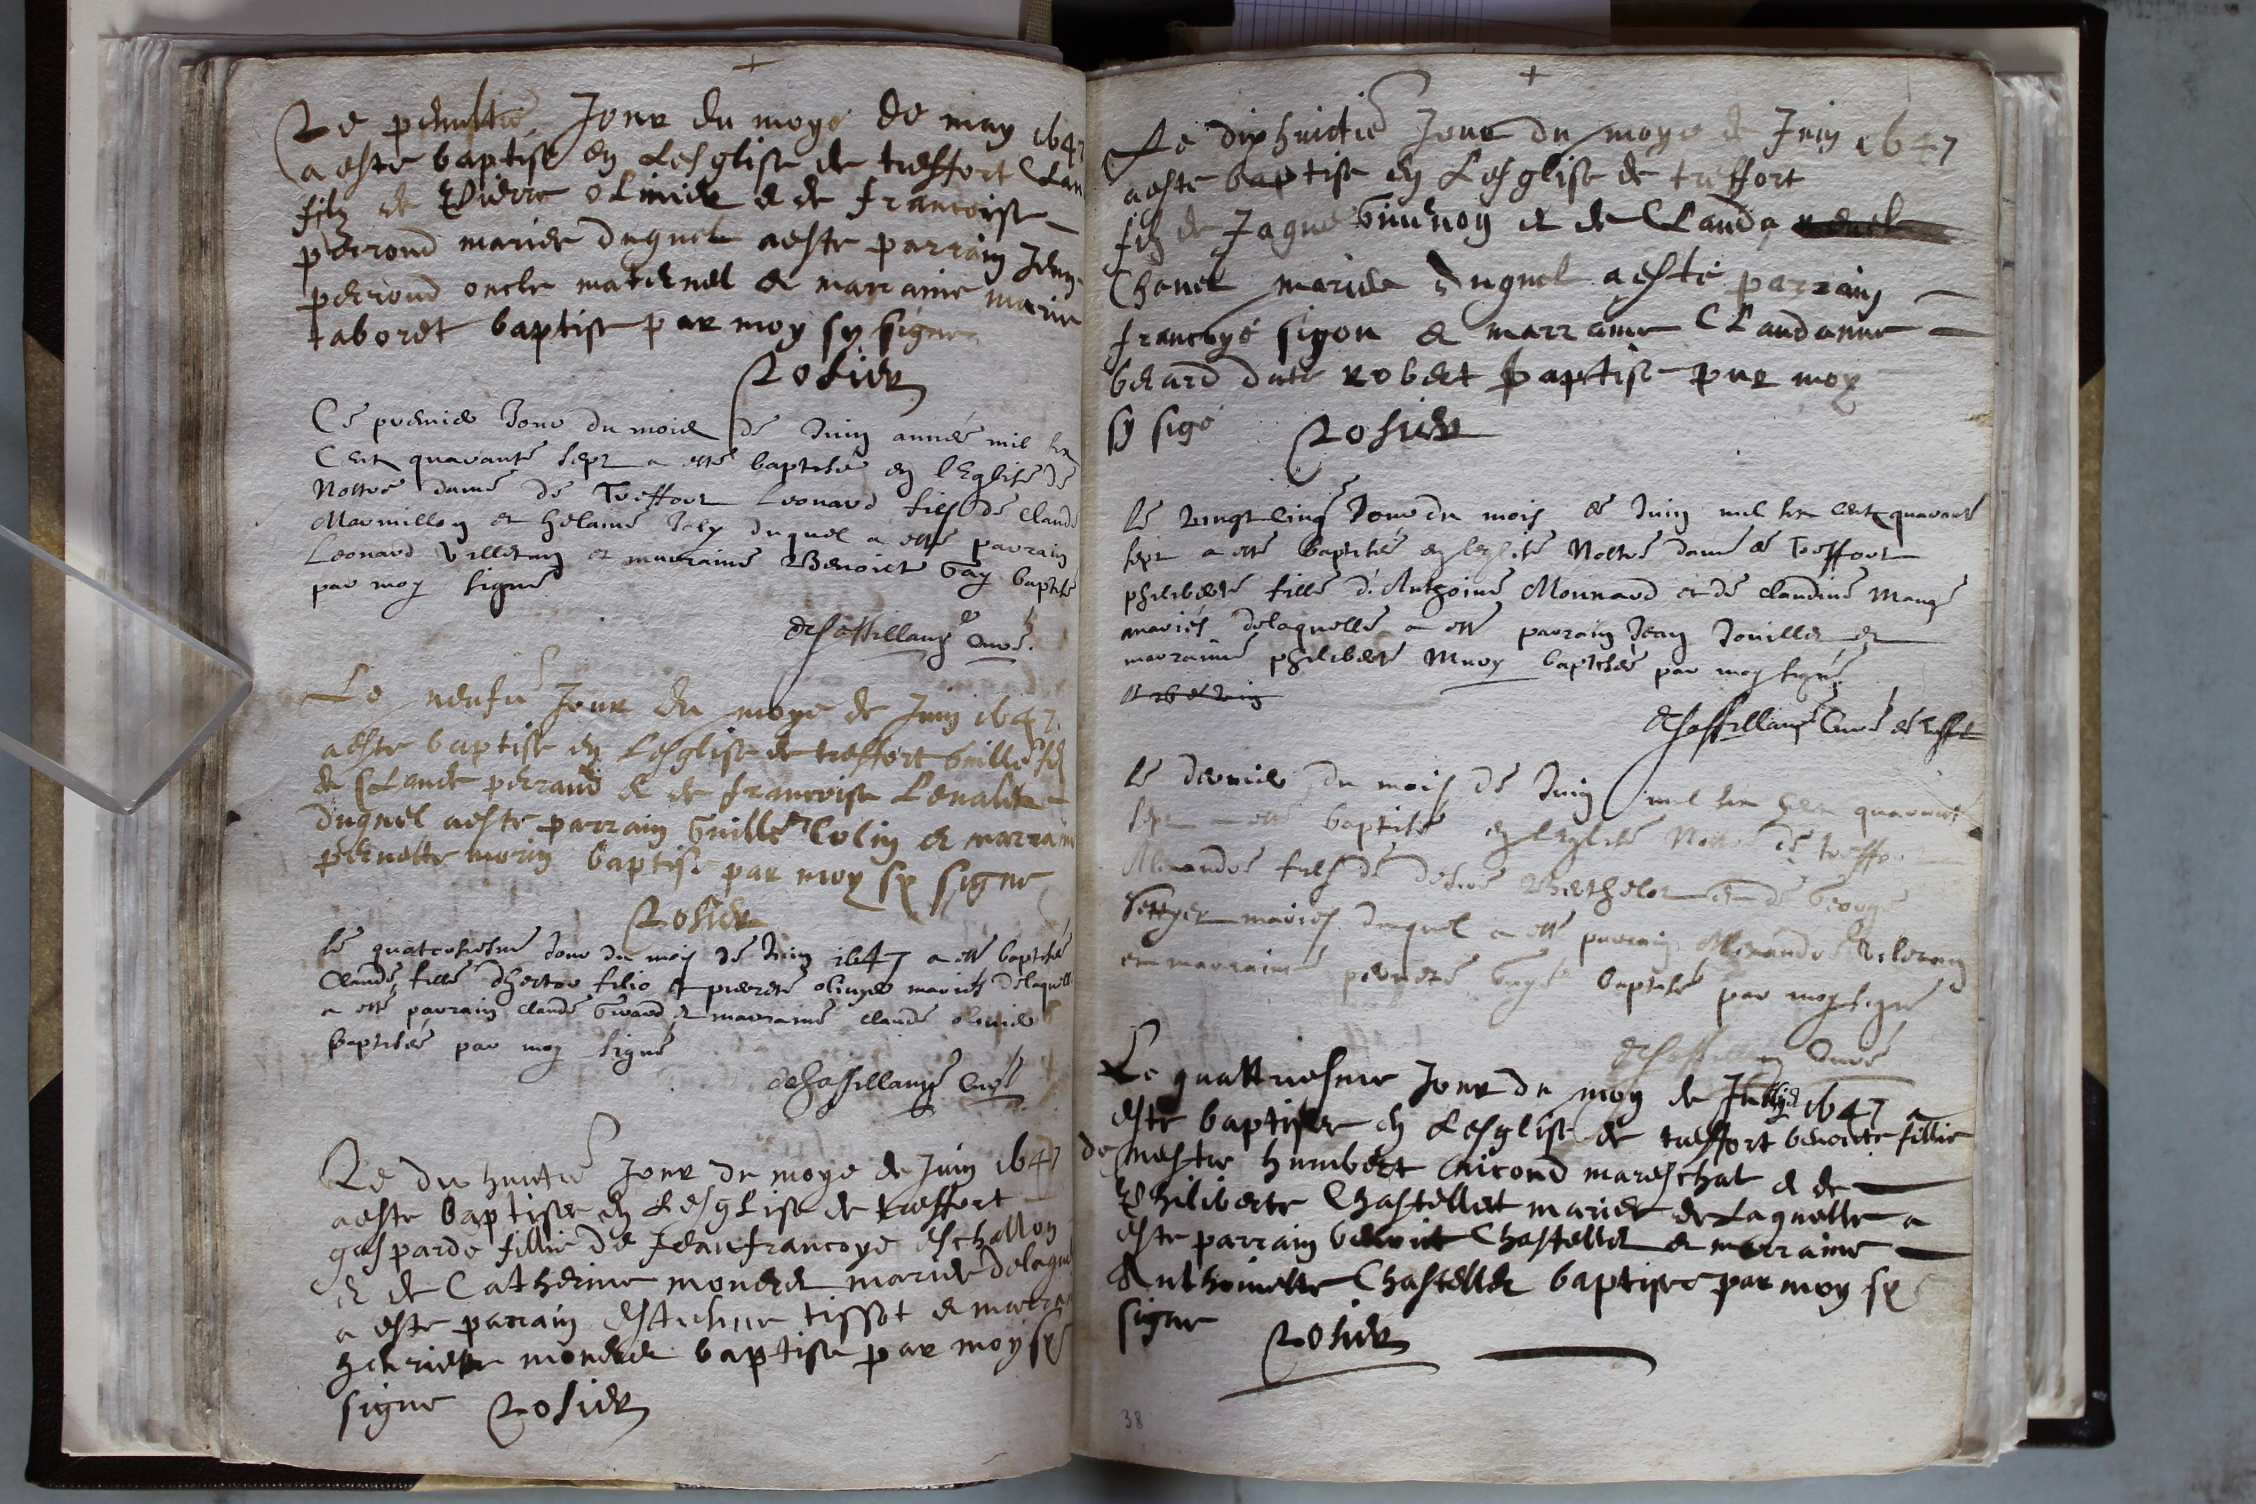 Le penultie Jour du moys de may 1647
a este baptise en Lesglise de treffort Clau
filz de Pierre olinier & de francoise
perrond maries duquel a este parrain Jean
perrond oncle maternel & marraine marie
taboret baptise par moy sy signe
Rosier
Ce premier Jour du mois de Juin année mil six
Cent quarante sept a esté baptisé en l'Eglise de
Nostre dame de Treffort Leonard fils de Claude
Marmillon et helaine Joly duquel a esté parrain
Leonard Villeman et marraine Benoiste Gay baptisé
par moy signé
Curé
Le neufie Jour du moys de Juin 1647
a este baptise en Lesglise de treffort Guille filz
de Claude perraud & de francoise
duquel a este parrain Guille Colin & marraine
pernette morin baptise par moy sy signe
Rosier
Le quatorziesme Jour du mois de Juin 1647 a esté baptisée
Claude fille d'hector filio et pierrete olinier mariés delaquelle
a esté parrain claude Girard et marraine claude olinier
baptisée par moy signé
Curé
Le dix huictie Jour du moys de Juin 1647
a este baptisee en Lesglise de treffort
gasparde fillie de Jean francoys eschallon
& de Catherine moneret maries delaquel
a este parrain estienne tissot & marraine
henriette moneret baptise par moy sy
signe Rosier
Le dix huictie Jour du moys de Juin 1647
a este baptise en Lesglise de treffort
filz de Jaque Guienoy et de Clauda
Chanel maries duquel a este parrain
francoys sigon & marraine Claudanne
berard ditte Robert baptise par moy
sy signe Rosier
Le vingt cinq Jour du mois de Juin mil six cent quarante
sept a esté baptisée en leglise Nostre dame de Treffort
philiberte fille d'Anthoine Monnard et de claudine Mange
mariés delaquelle a esté parrain Jean Jouillet et
marraine philiberte Muoy baptisée par moy signé
Curé de Treffort
Le dernier du mois de Juin mil six cent quarante
sept a esté baptisé en leglise Nostre de treffort
Alexandre fils de desire Berthelot et de George
mariés duquel a esté parrain Alexandre Vileman
et marraine pernete baptisé par moy signé
Curé
Le quattriesme Jour du moy de Jullyet 1647 a
este baptisee en Lesglise de treffort benoicte fillie
de mestre humbert Mirond mareschal & de
Philiberte Chastellet maries de Laquelle a
este parrain benoict Chastellet & marraine
Anthoinette Chastellet baptisee par moy sy
signe Rosier
38